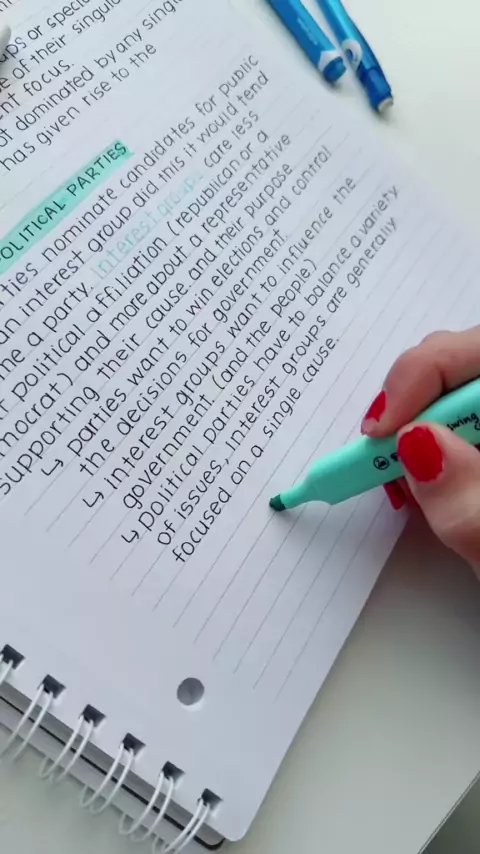 ups or speci
e of their singula
nt focus.
ot dominated by any singl
has given rise to the
POLITICAL PARTIES
ties nominate candidates for public
an interest group did this it would tend
me a party. interest groups care less
r political affiliation (republican or a
mocrat) and more about a representative
supporting their cause and their purpose
↳ parties want to win elections and control
the decisions for government.
↳ interest groups want to influence the
government (and the people)
↳ political parties have to balance a variety
of issues, interest groups are generally
focused on a single cause.
swing